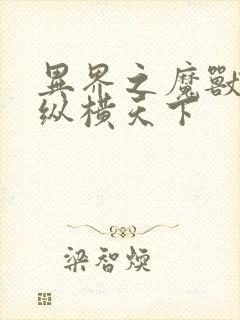 異界之魔獸
纵橫天下
梁智煐